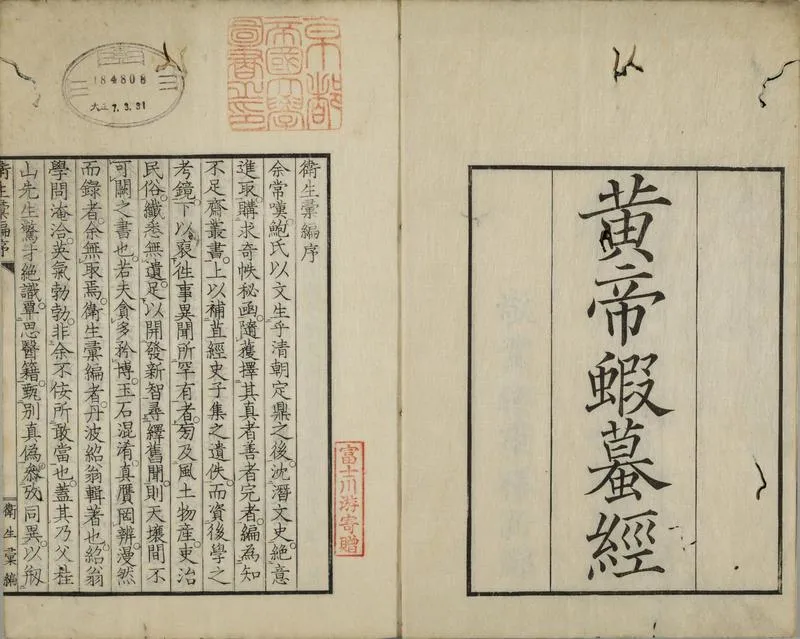 黃帝蝦蟇經
京都
帝國大學
圖書之印
184808
大正7.3.31
富士川游寄贈
衛生彙編序
余常嘆鮑氏以文生乎清朝定鼎之後。沈潛文史。絶意
進取。購求奇帙秘函。隨獲擇其真者善者完者。編為知
不足齋叢書。上以補苴經史子集之遺佚。而資後學之
考鏡。下以裒徃事異聞所罕有者。旁及風土物產。吏治
民俗。纖巻無遺。足以開發新智。尋繹舊聞。則天壤間不
可闕之書也。若夫貪多矜博。玉石混淆。真贋罔辨。漫然
而録者。余無取焉。衛生彙編者。丹波紹翁輯著也。紹翁
學問淹洽。英氣勃勃。非余不佞所敢當也。蓋其乃父桂
山先生驚才絶識。覃思醫籍。甄別真偽。叅攷同異。以剏
衛生彙編序
衛生彙編